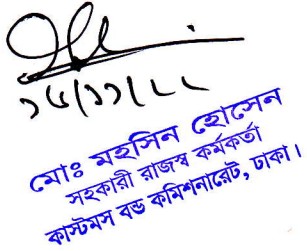 মোঃ মহসিন হোসেন
সহকারী রাজস্ব কর্মকর্তা
কাস্টমস বন্ড কমিশনারেট, ঢাকা।